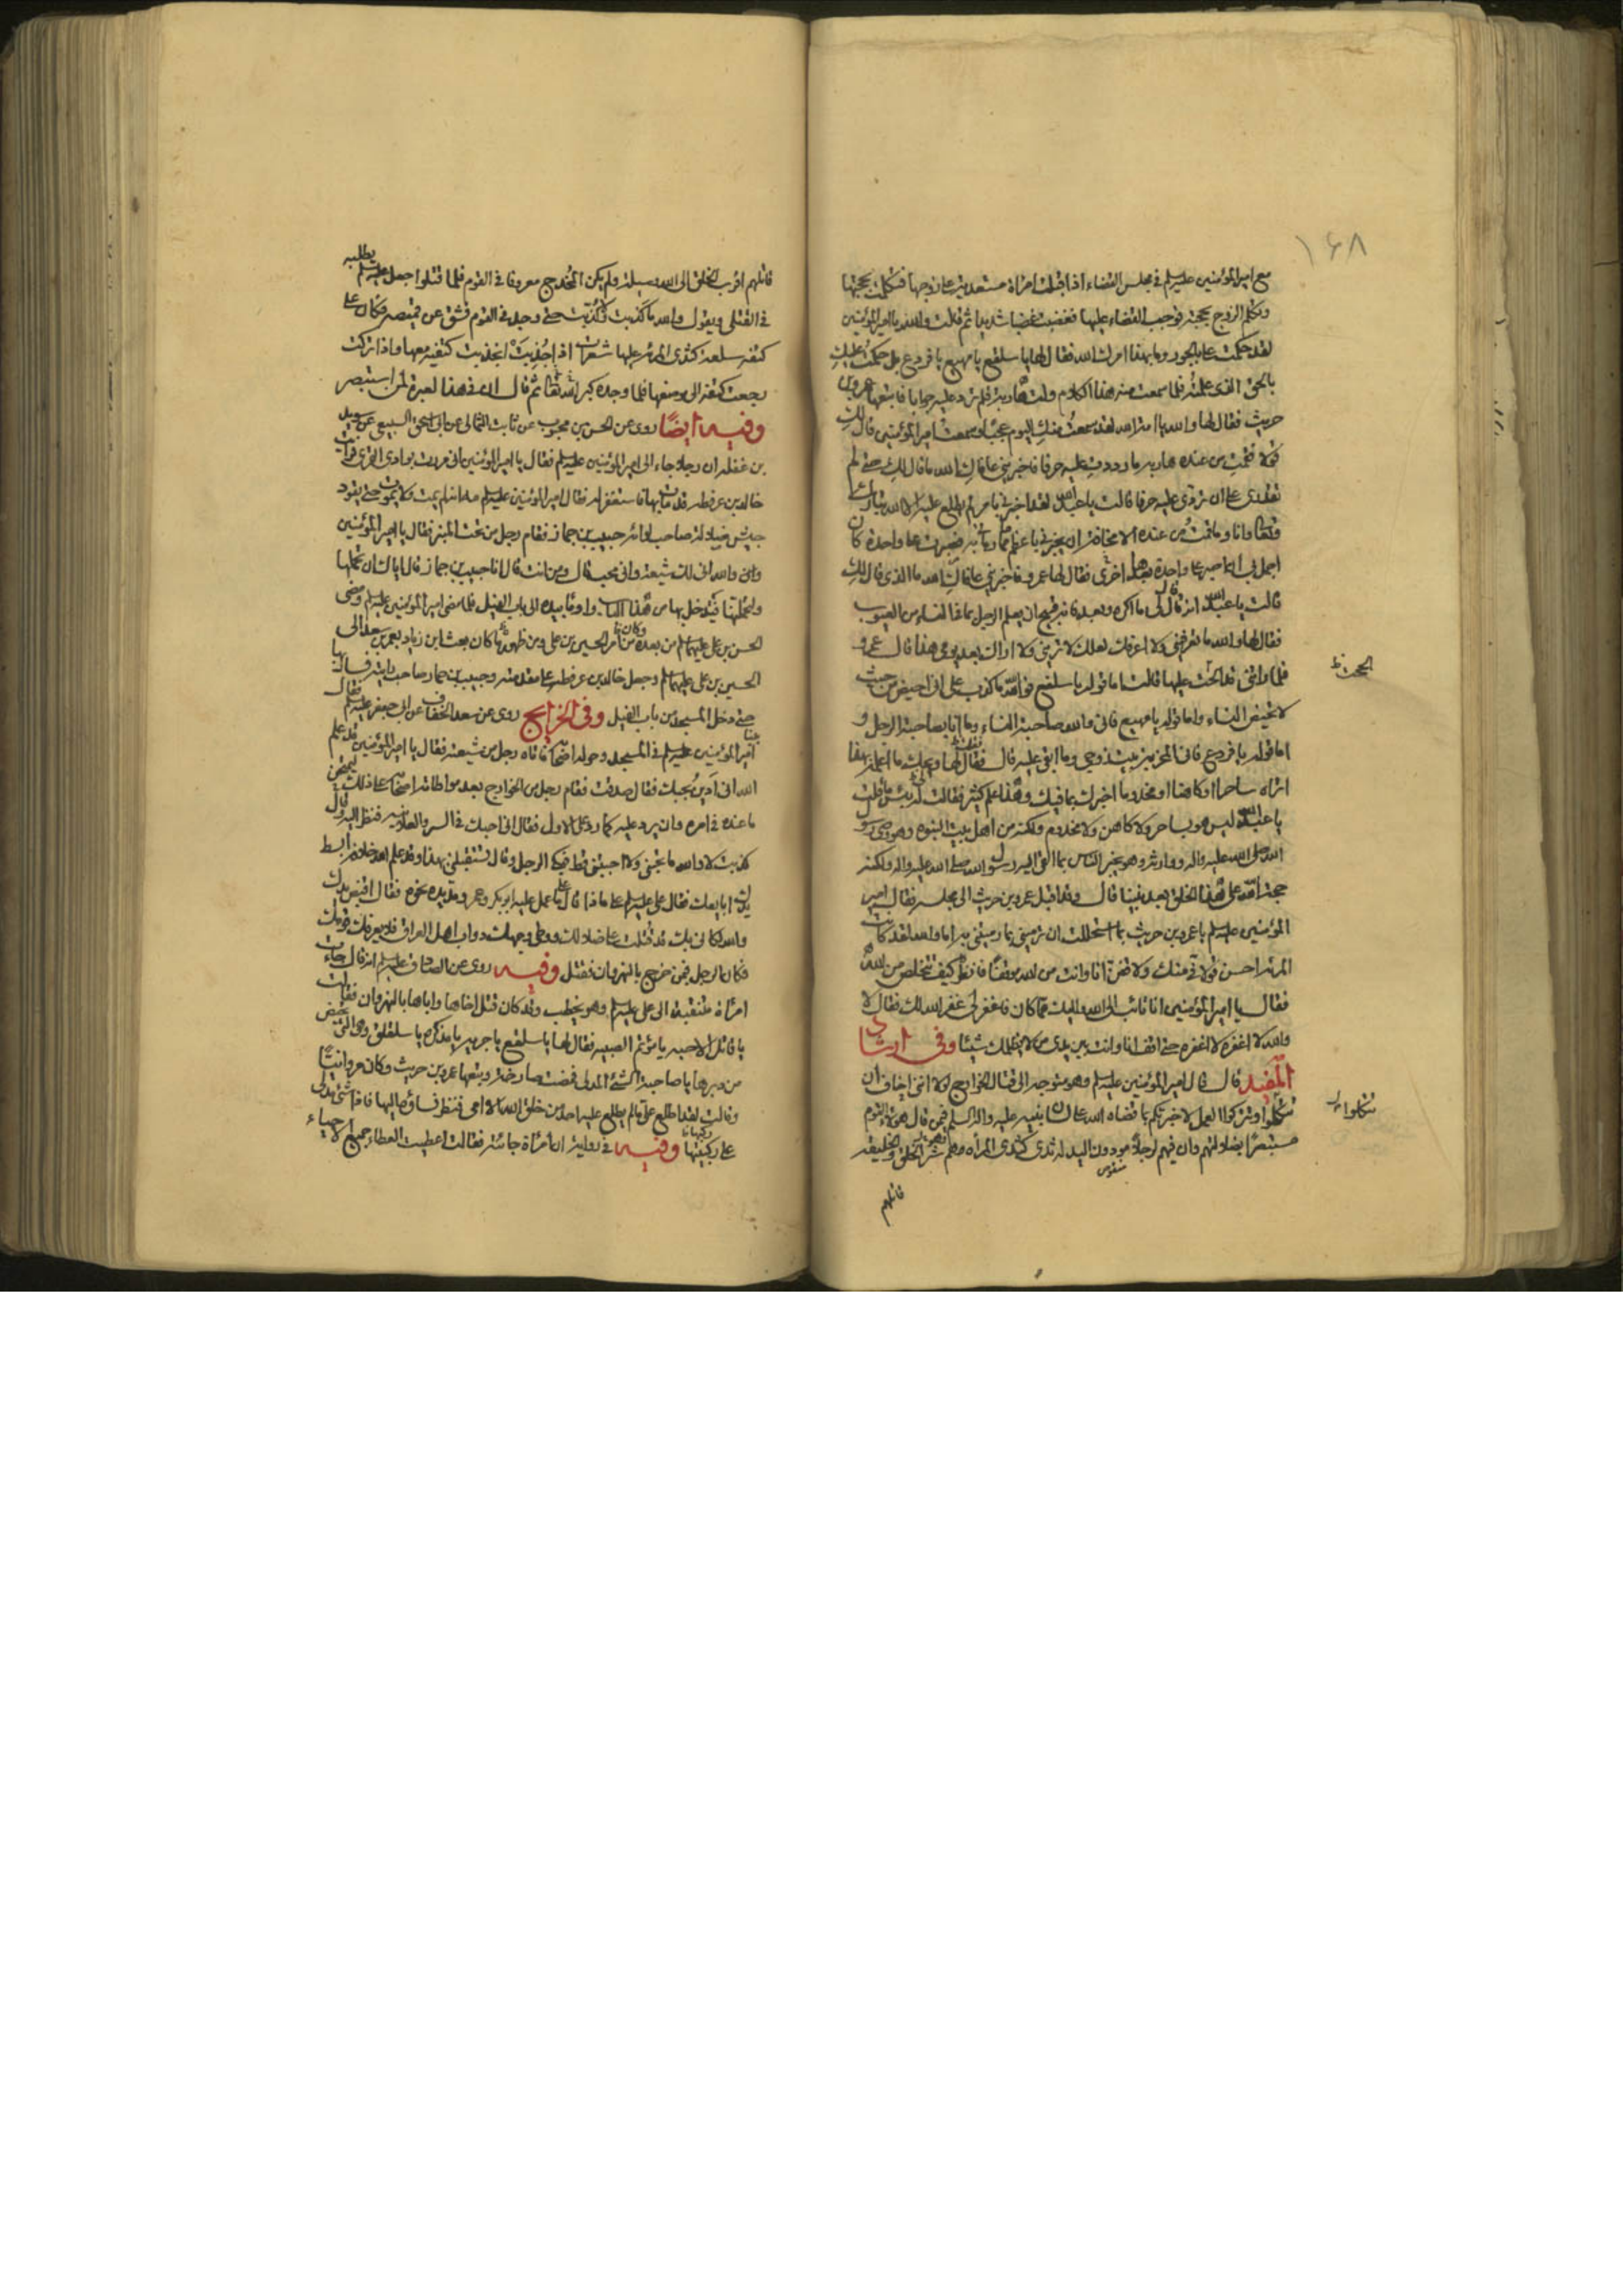 ١٦٨
مع امير المؤمنين عليه السلم في مجلس القضاء اذ اقبلت امراة مستعدية على زوجها فتكلمت بحجتها
وتكلم الزوج بحجته فوجب القضاء عليها فغضبت غضبا شديدا ثم قالت والله يا امير المؤمنين
لقد حكمت علي بالجور وما بهذا امرك الله فقال لها يا سلفع يا مهيع يا قردع بل حكمت عليك
بالحق الذي علمته فلما سمعت منه هذا الكلام ولت هاربة فلم ترد عليه جوابا فاتبعها عمرو بن
حريث فقال لها والله يا امة الله لقد سمعت منك اليوم عجبا وسمعت امير المؤمنين قال لك
قولا فقمت من عنده هاربة ما رددت عليه حرفا فاخبريني عافاك الله ما قال لك حتى لم
تقدري على ان تردي عليه حرفا قالت يا عبد الله لقد اخبرني بامر لم يطلع عليه الا الله تبارك
وتعالى وانا وما قمت من عنده الا مخافة ان يخبرني باعظم مما رماني به فصبرت على واحدة كان
اجمل بي ان اصبر على واحدة بعدها اخرى فقال لها عمرو فاخبريني عافاك الله ما الذي قال لك
قالت يا عبد الله انه قال لي ما اكره وبعد فانه قبيح ان يعلم الرجل بما في النساء من العيوب
فقال لها والله ما تعرفيني ولا اعرفك لعلك لا تريني ولا اراك بعد يومي هذا قال عمرو
فلما راتني قد الححت عليها قالت اما قوله يا سلفع فوالله ما كذب علي اني احيض من حيث
لا تحيض النساء واما قوله يا مهيع فاني والله صاحبة النساء وما انا بصاحبة الرجال و
اما قوله يا قردع فاني المخربة بيت زوجي وما ابقي عليه قال فقال لها ويحك ما اعلمه بهذا
اتراه ساحرا او كاهنا او مخدوما اخبرك بما فيك وهذا علم كثير فقالت له بئس ما قلت
يا عبد الله ليس هو بساحر ولا كاهن ولا مخدوم ولكنه من اهل بيت النبوة وهو وصي رسول
الله صلى الله عليه واله ووارثه وهو يخبر الناس بما القى اليه رسول الله صلى الله عليه واله ولكنه
حجة الله على هذا الخلق بعد نبينا قال وقد اقبل عمرو بن حريث الى مجلسه فقال امير
المؤمنين عليه السلم يا عمرو بن حريث بما استحللت ان ترميني بما رميتني به اما والله لقد كانت
المراة احسن قولا في منك ولاقفن انا وانت من الله موقفا فانظر كيف تتخلص من الله
فقال يا امير المؤمنين انا تائب الى الله واليك مما كان فاغفر لي غفر الله لك فقال لا
والله لا اغفره لا اغفره حتى اقف انا وانت بين يدي من لا يظلمك شيئا وفي ارشاد
المفيد قال قال امير المؤمنين عليه السلم وهو متوجه الى قتال الخوارج لولا انني اخاف ان
تتكلوا وتتركوا العمل لاخبرتكم بما قضاه الله على لسان نبيه عليه واله السلم فيمن قاتل هؤلاء القوم
مستبصرا بضلالتهم وان فيهم لرجلا مودون اليد له ثدي كثدي المراة وهم شر الخلق والخليقة
قاتلهم
قاتلهم اقرب الخلق الى الله وسيلة ولم يكن المخدج معروفا في القوم فلما قتلوا جعل عليه السلم يطلبه
في القتلى ويقول والله ما كذبت ولا كذبت حتى وجد في القوم فشق عن قميصه وكان على
كتفه سلعة كثدي المراة عليها شعرات اذا جذبت انجذبت كتفه معها واذا تركت
رجعت كتفه الى موضعها فلما وجده كبر الله تعالى ثم قال ان في هذا لعبرة لمن استبصر
وفيه ايضا روى عن الحسن بن محبوب عن ثابت الثمالي عن ابي اسحق السبيعي عن سويد
بن غفلة ان رجلا جاء الى امير المؤمنين عليه السلم فقال يا امير المؤمنين اني مررت بوادي القرى فرايت
خالد بن عرفطة قد مات بها فاستغفر له فقال امير المؤمنين عليه السلم مه انه لم يمت ولا يموت حتى يقود
جيش ضلالة صاحب لوائه حبيب بن جماز فقام رجل من تحت المنبر فقال يا امير المؤمنين
والله اني لك شيعة واني محب قال ومن انت قال انا حبيب بن جماز قال اياك ان تحملها
ولتحملنها فتدخل بها من هذا الباب واومأ بيده الى باب الفيل فلما مضى امير المؤمنين عليه السلم ومضى
الحسن بن علي عليهما السلم من بعده وكان من امر الحسين بن علي ومن ظهوره ما كان بعث ابن زياد بعمر بن سعد الى
الحسين بن علي عليهما السلم وجعل خالد بن عرفطة على مقدمته وحبيب بن جماز صاحب رايته فسار بها
حتى دخل المسجد من باب الفيل وفي الخرايج روى عن سعد الخفاف عن ابي جعفر عليه السلم قال
بينا امير المؤمنين عليه السلم في المسجد وحوله اصحابه فاتاه رجل من شيعته فقال يا امير المؤمنين قد علم
الله اني ادين بحبك فقال صدقت فقام رجل من الخوارج بعد مواطاة اصحابه على ذلك ليمتحن
ما عنده في امره وان يرد عليه كما رد على الاول فقال اني احبك في السر والعلانية فنظر اليه وقال
كذبت لا والله ما تحبني ولا احببتني قط فبكى الرجل وقال تستقبلني بهذا وقد علم الله خلافه ابسط
يدك ابايعك فقال علي عليه السلم على ماذا قال على ما عمل عليه ابو بكر وعمر ومد يده نحوه فقال اقبض يدك
والله لكاني بك قد قتلت على ضلالك ووطئ وجهك دواب اهل العراق فلا يعرفك قومك
فكان الرجل فيمن خرج بالنهروان فقتل وفيه روى عن الصادق عليه السلم انه قال جاءت
امراة متنقبة الى علي عليه السلم وهو يخطب وقد كان قتل اخاها واباها بالنهروان فقالت
يا قاتل الاحبة يا مؤتم الصبية فقال لها يا سلفع يا جريه يا مذكرة يا سلقلق والتي تحيض
من دبرها يا صاحبة الشئ المدلى فمضت صارخة وتبعها عمرو بن حريث وكان مروانيا
وقالت لقد اطلع علي ما لم يطلع عليه احد من خلق الله الا امي فنظر نساؤه اليها فاذا شئ مدلى
على ركبتها وفيه في رواية ان امراة جائته فقالت اعطيت العطاء جميع الاحياء